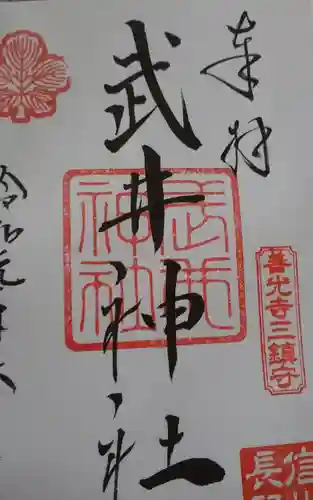 奉拝
善光寺三鎮守
武井神社
武井神社
令和元年